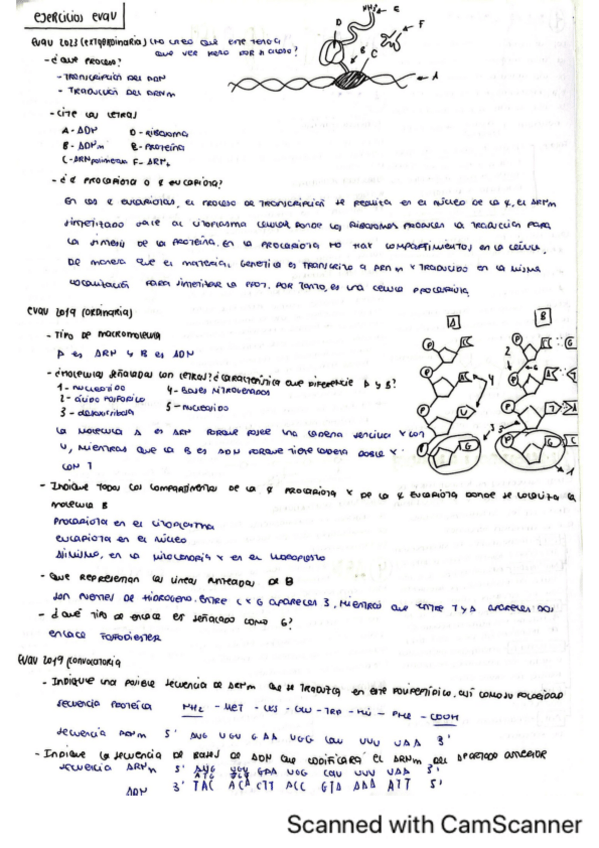 EJERCICIOS EVAU
EVAU 2023 (EXTRAORDINARIA) (NO CREO QUE ESTE TENGA
QUE VER PERO POR SI ACASO)
- ¿QUÉ PROCESO?
- TRANSCRIPCIÓN DEL ADN
- TRADUCCIÓN DEL ARNm
- CITE LAS LETRAS
A - ADN D - RIBOSOMA
B - ARNm E - PROTEÍNA
C - ARNpolimerasa F - ARNt
NH2 E
D
F
B
C
A
PROCARIOTA O EUCARIOTA?
EN LAS EUCARIOTAS, EL PROCESO DE TRANSCRIPCIÓN SE REALIZA EN EL NÚCLEO DE LA, EL ARNm
SINTETIZADO SALE AL CITOPLASMA CELULAR DONDE LOS RIBOSOMAS PRODUCEN LA TRADUCCIÓN PARA
LA SÍNTESIS DE LA PROTEÍNA. EN LA PROCARIOTA NO HAY COMPARTIMENTOS EN LA CÉLULA,
DE MANERA QUE EL MATERIAL GENÉTICO ES TRANSCRITO A ARNm Y TRADUCIDO EN LA MISMA
LOCALIZACIÓN PARA SINTETIZAR LA PROT. POR TANTO, ES UNA CÉLULA PROCARIOTA
EVAU 2019 (ORDINARIA)
- TIPO DE MACROMOLÉCULA
A ES ARN Y B ES ADN
- ¿MOLÉCULAS SEÑALADAS CON LETRAS? ¿CARACTERÍSTICA QUE DIFERENCIE A Y B?
1 - NUCLEÓTIDO 4 - BASES NITROGENADAS
2 - ÁCIDO FOSFÓRICO 5 - NUCLEÓSIDO
3 - DESOXIRRIBOSA
LA MOLÉCULA A ES ARN PORQUE POSEE UNA CADENA SENCILLA Y CON
U, MIENTRAS QUE LA B ES ADN PORQUE TIENE CADENA DOBLE Y
CON T
A B
- INDIQUE TODOS LOS COMPARTIMENTOS DE LA PROCARIOTA Y DE LA EUCARIOTA DONDE SE LOCALIZA LA
MOLÉCULA B
PROCARIOTA EN EL CITOPLASMA
EUCARIOTA EN EL NÚCLEO
ASIMISMO, EN LA MITOCONDRIA Y EN EL CLOROPLASTO
- QUE REPRESENTAN LAS LÍNEAS PUNTEADAS DE B
SON PUENTES DE HIDRÓGENO. ENTRE C Y G APARECEN 3, MIENTRAS QUE ENTRE T Y A APARECEN DOS
- ¿QUÉ TIPO DE ENLACE ES SEÑALADO COMO 6?
ENLACE FOSFODIESTER
EVAU 2019 (CONVOCATORIA
- INDIQUE UNA POSIBLE SECUENCIA DE ARNm QUE SE TRADUZCA EN ESTE POLIPEPTÍDICO, ASÍ COMO SU POLARIDAD
SECUENCIA PROTEÍCA NH2 - MET - CYS - GLU - TRP - HIS - PHE - COOH
SECUENCIA ARNm 5' AUG UGU GAA UGG CAU UUU UAA 3'
- INDIQUE LA SECUENCIA DE BASES DE ADN QUE CODIFICARÁ EL ARNm DEL APARTADO ANTERIOR
SECUENCIA ARNm 5' AUG UGU GAA UGG CAU UUU UAA 3'
ADN 3' TAC ACA CTT ACC GTA AAA ATT 5'
Scanned with CamScanner